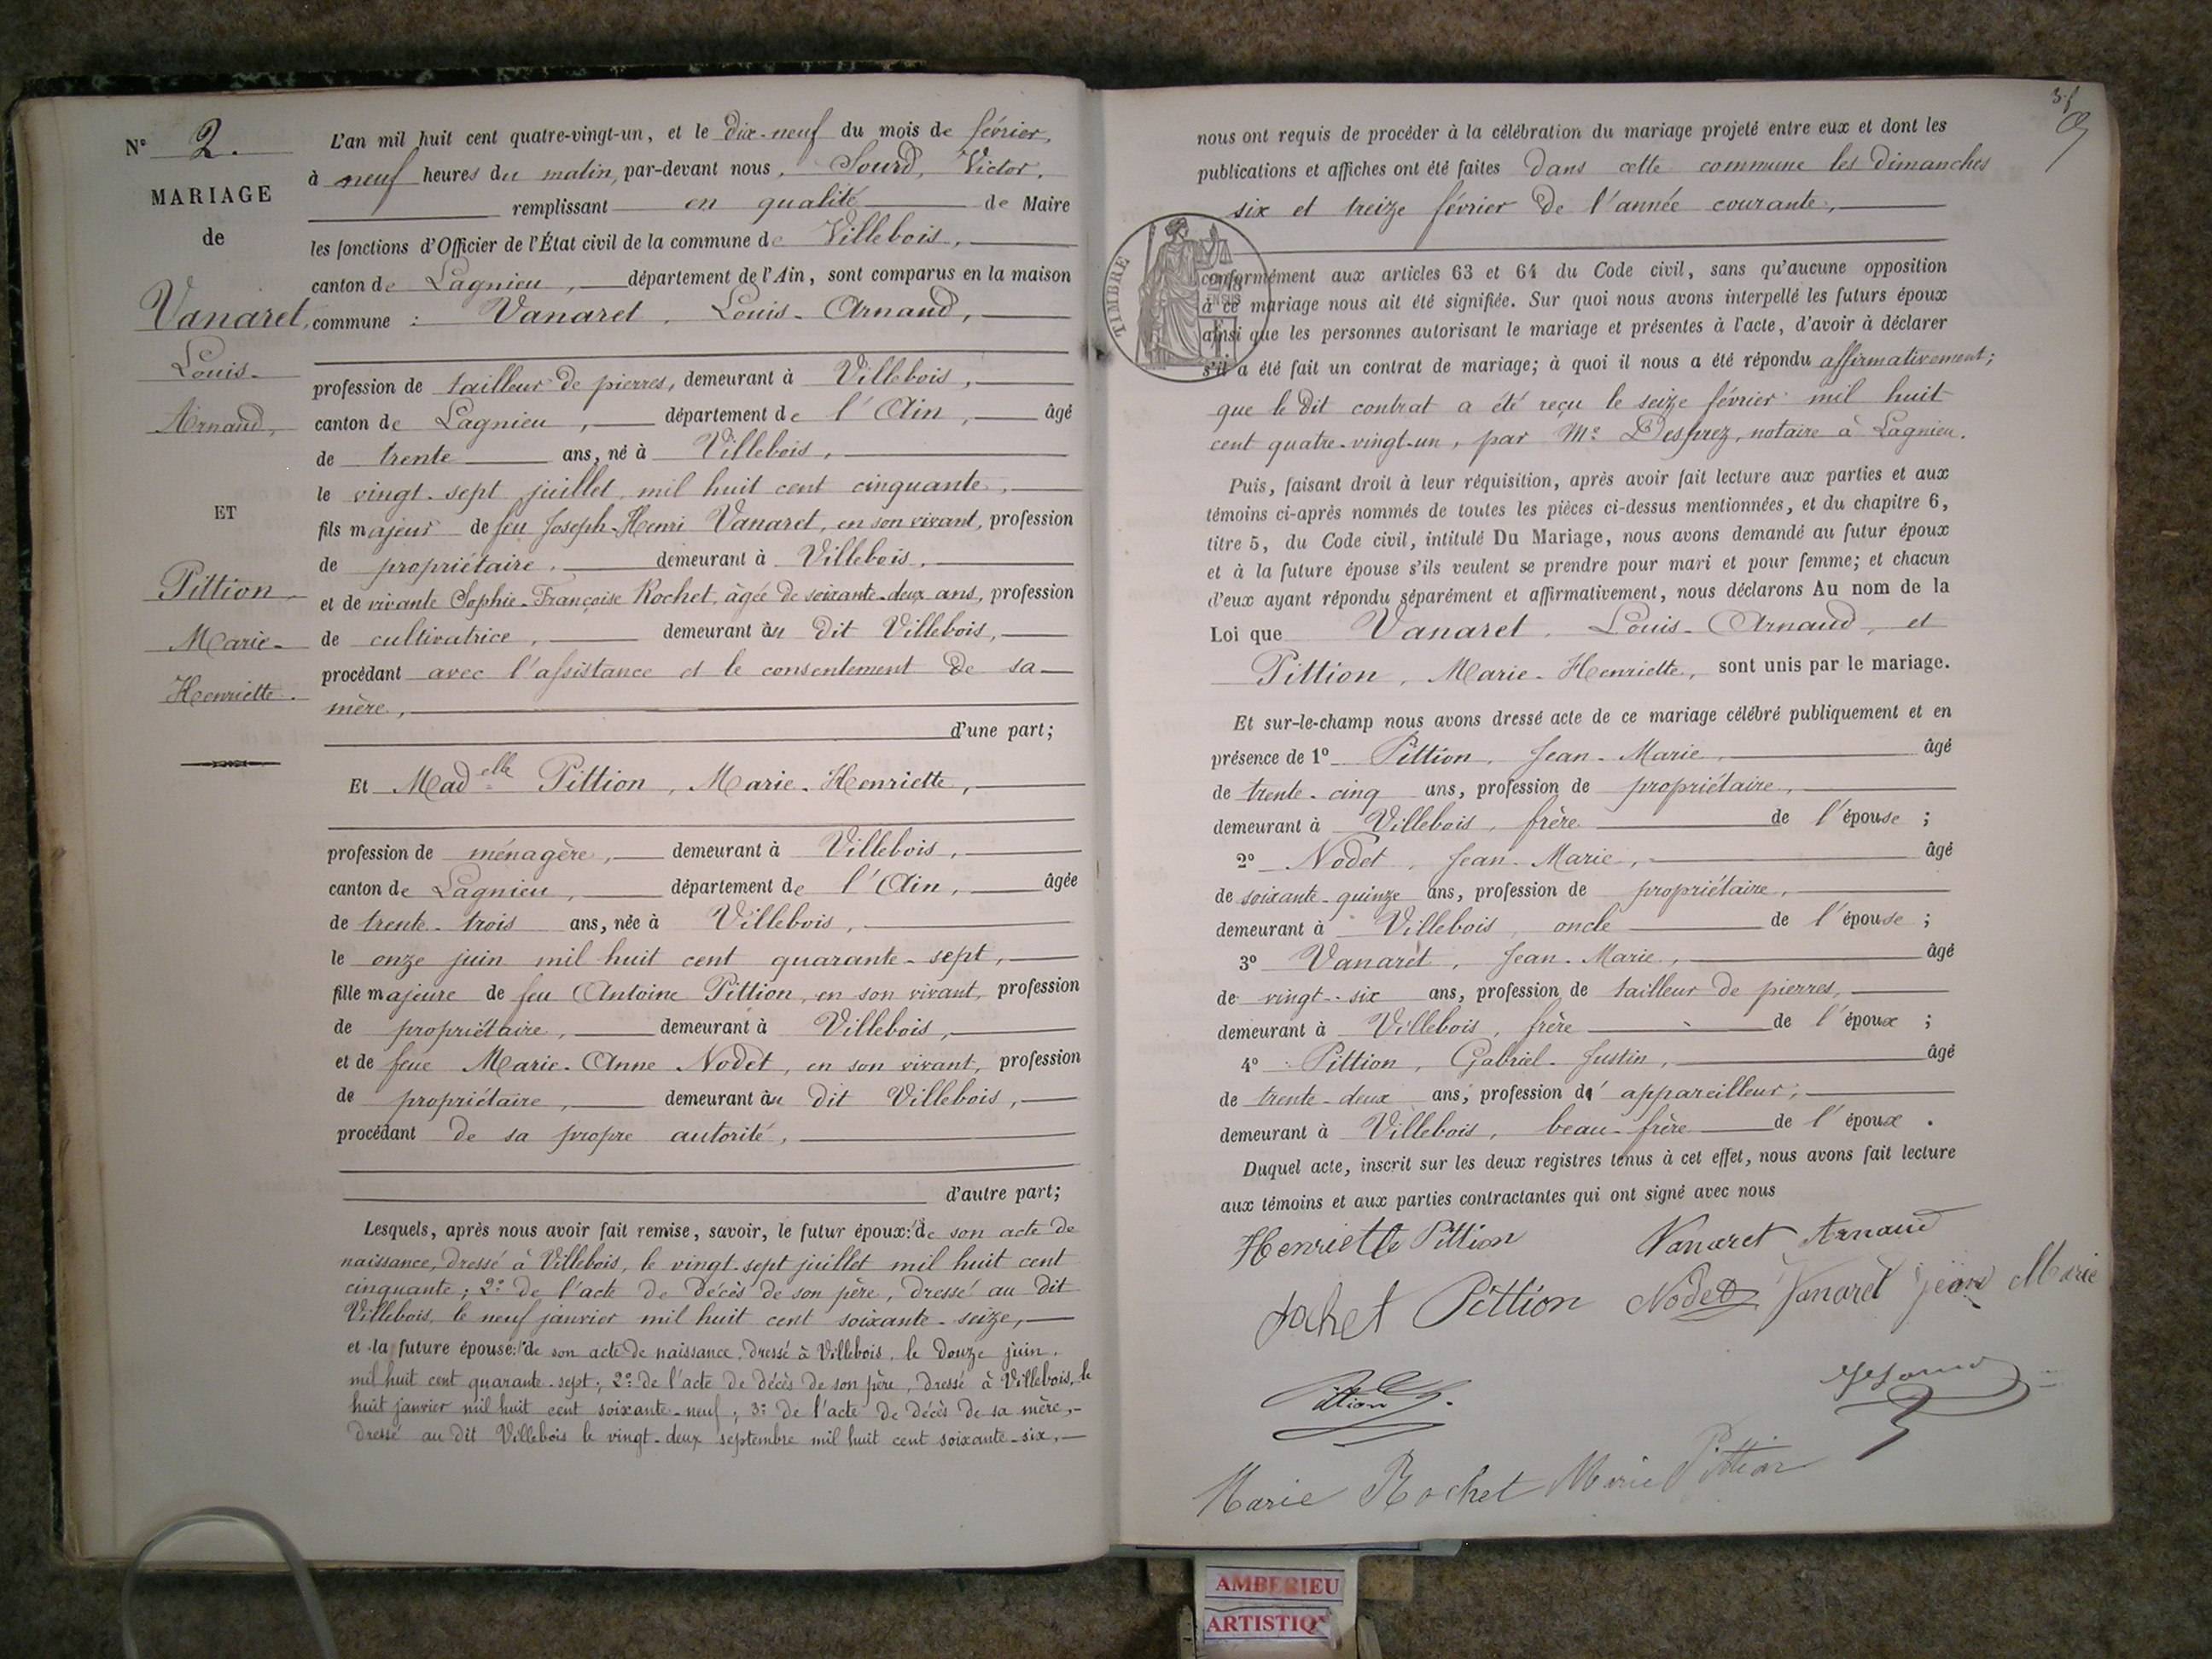 N° 2.
MARIAGE
de
Vanaret,
Louis-
Arnaud,
ET
Pittion
Marie-
Henriette.
L'an mil huit cent quatre-vingt-un, et le dix-neuf du mois de février,
à neuf heures du matin, par-devant nous, Sourd, Victor,
remplissant en qualité de Maire
les fonctions d'Officier de l'État civil de la commune de Villebois,
canton de Lagnieu, département de l'Ain, sont comparus en la maison
commune : Vanaret, Louis-Arnaud,
profession de tailleur de pierres, demeurant à Villebois,
canton de Lagnieu, département de l'Ain, âgé
de trente ans, né à Villebois,
le vingt-sept juillet mil huit cent cinquante,
fils majeur de feu Joseph-Henri Vanaret, en son vivant, profession
de propriétaire, demeurant à Villebois,
et de vivante Sophie-Françoise Rochet, âgée de soixante-deux ans, profession
de cultivatrice, demeurant au dit Villebois,
procédant avec l'assistance et le consentement de sa
mère,
d'une part;
Et Madelle Pittion, Marie-Henriette,
profession de ménagère, demeurant à Villebois,
canton de Lagnieu, département de l'Ain, âgée
de trente-trois ans, née à Villebois,
le onze juin mil huit cent quarante-sept,
fille majeure de feu Antoine Pittion, en son vivant, profession
de propriétaire, demeurant à Villebois,
et de feue Marie-Anne Nodet, en son vivant, profession
de propriétaire, demeurant au dit Villebois,
procédant de sa propre autorité,
d'autre part;
Lesquels, après nous avoir fait remise, savoir, le futur époux: 1° de son acte de
naissance, dressé à Villebois, le vingt-sept juillet mil huit cent
cinquante; 2° de l'acte de décès de son père, dressé au dit
Villebois, le neuf janvier mil huit cent soixante-seize,
et la future épouse: 1° de son acte de naissance, dressé à Villebois, le douze juin
mil huit cent quarante-sept; 2° de l'acte de décès de son père, dressé à Villebois, le
huit janvier mil huit cent soixante-neuf; 3° de l'acte de décès de sa mère,
dressé au dit Villebois le vingt-deux septembre mil huit cent soixante-six,
nous ont requis de procéder à la célébration du mariage projeté entre eux et dont les
publications et affiches ont été faites dans cette commune les dimanches
six et treize février de l'année courante,
TIMBRE
conformément aux articles 63 et 64 du Code civil, sans qu'aucune opposition
à ce mariage nous ait été signifiée. Sur quoi nous avons interpellé les futurs époux
ainsi que les personnes autorisant le mariage et présentes à l'acte, d'avoir à déclarer
s'il a été fait un contrat de mariage; à quoi il nous a été répondu affirmativement;
que le dit contrat a été reçu le seize février mil huit
cent quatre-vingt-un, par Me Desprez, notaire à Lagnieu.
Puis, faisant droit à leur réquisition, après avoir fait lecture aux parties et aux
témoins ci-après nommés de toutes les pièces ci-dessus mentionnées, et du chapitre 6,
titre 5, du Code civil, intitulé Du Mariage, nous avons demandé au futur époux
et à la future épouse s'ils veulent se prendre pour mari et pour femme; et chacun
d'eux ayant répondu séparément et affirmativement, nous déclarons Au nom de la
Loi que Vanaret, Louis-Arnaud, et
Pittion, Marie-Henriette, sont unis par le mariage.
Et sur-le-champ nous avons dressé acte de ce mariage célébré publiquement et en
présence de 1° Pittion, Jean-Marie, âgé
de trente-cinq ans, profession de propriétaire,
demeurant à Villebois, frère de l'épouse ;
2° Nodet, Jean-Marie, âgé
de soixante-quinze ans, profession de propriétaire,
demeurant à Villebois, oncle de l'épouse ;
3° Vanaret, Jean-Marie, âgé
de vingt-six ans, profession de tailleur de pierres,
demeurant à Villebois, frère de l'époux ;
4° Pittion, Gabriel-Justin, âgé
de trente-deux ans, profession d'appareilleur,
demeurant à Villebois, beau-frère de l'époux.
Duquel acte, inscrit sur les deux registres tenus à cet effet, nous avons fait lecture
aux témoins et aux parties contractantes qui ont signé avec nous
Henriette Pittion Vanaret Arnaud
Pittion Nodet Vanaret jean Marie
Pittion
Marie Rochet Marie Pittion
AMBERIEU
ARTISTIQ